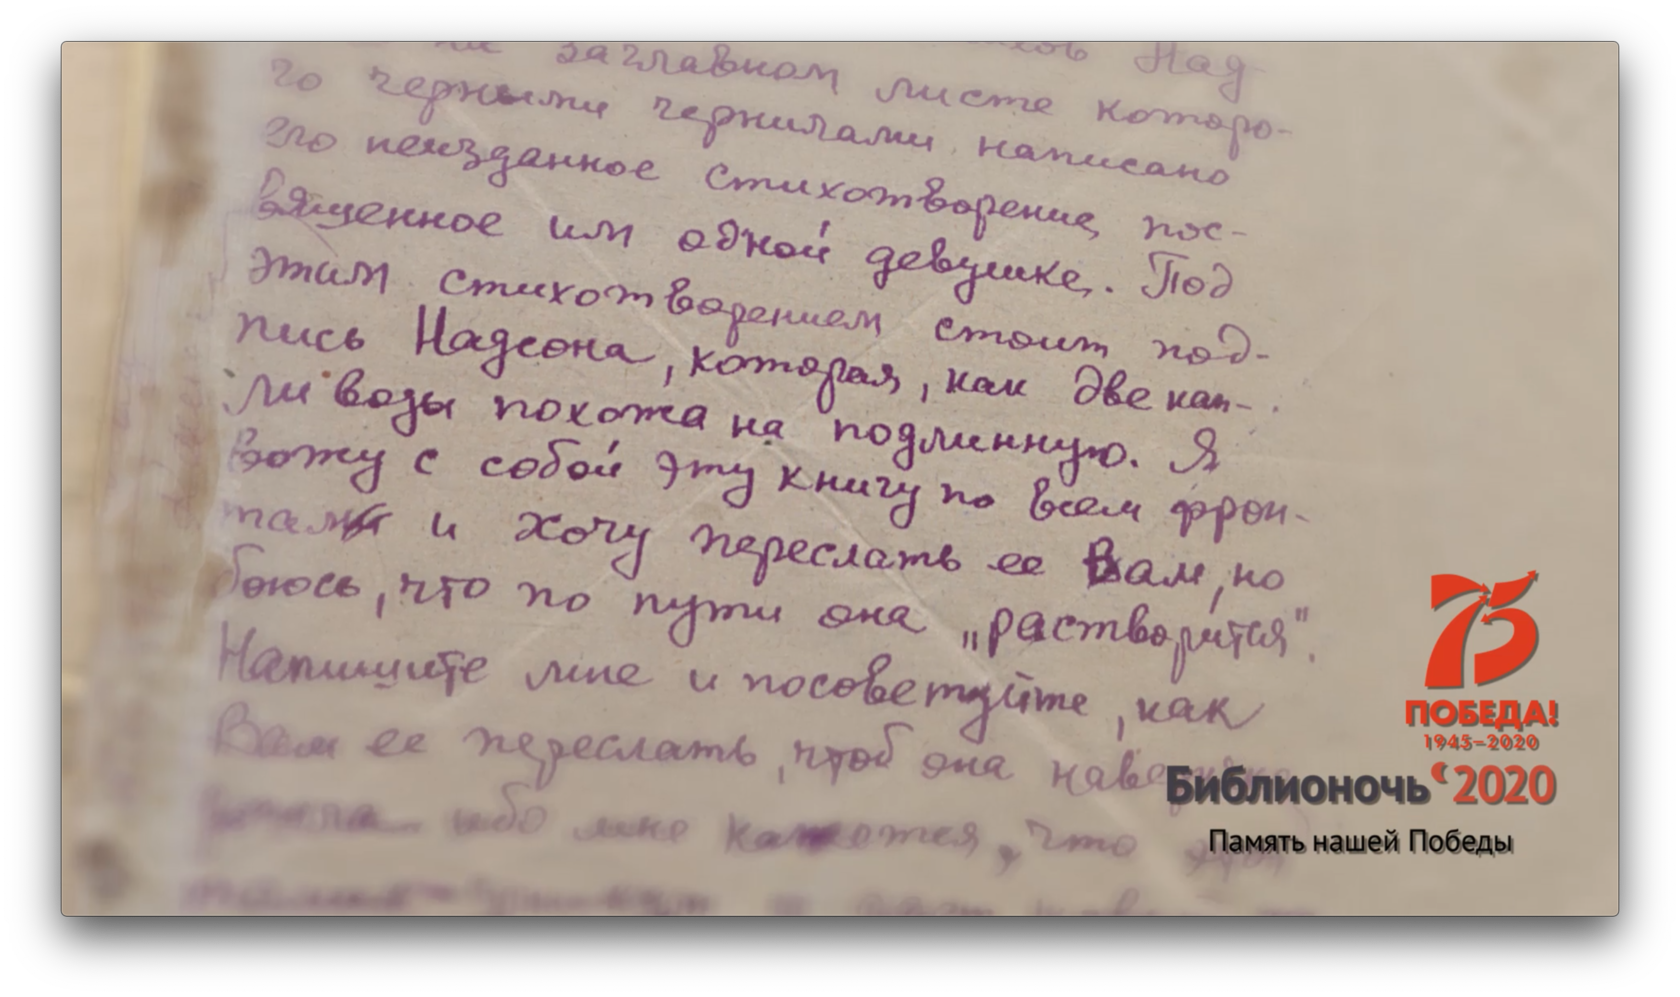 на заглавном листе которо-
го черными чернилами написано
его неизданное стихотворение, пос-
вященное им одной девушке. Под
этим стихотворением стоит под-
пись Надсона, которая, как две кап-
ли воды похожа на подлинную. Я
вожу с собой эту книгу по всем фрон-
там и хочу переслать ее Вам, но
боюсь, что по пути она „растворится".
Напишите мне и посоветуйте, как
Вам ее переслать, чтоб она
ибо мне кажется, что
75
ПОБЕДА!
1945–2020
Библионочь 2020
Память нашей Победы